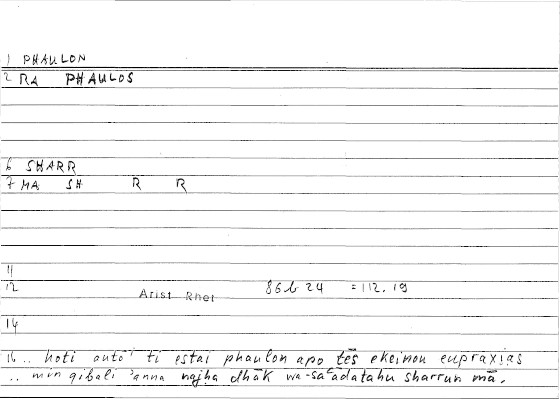 1 PHAULON
2 RA PHAULOS
6 SHARR
7 MA SH R R
11
12 Arist Rhet 86b 24 = 112.19
14
16 .. hoti autō ti estai phaulon apo tēs ekeinou eupraxias
.. min qibali 'anna najha dhāk wa-saʿādatahu sharrun mā.